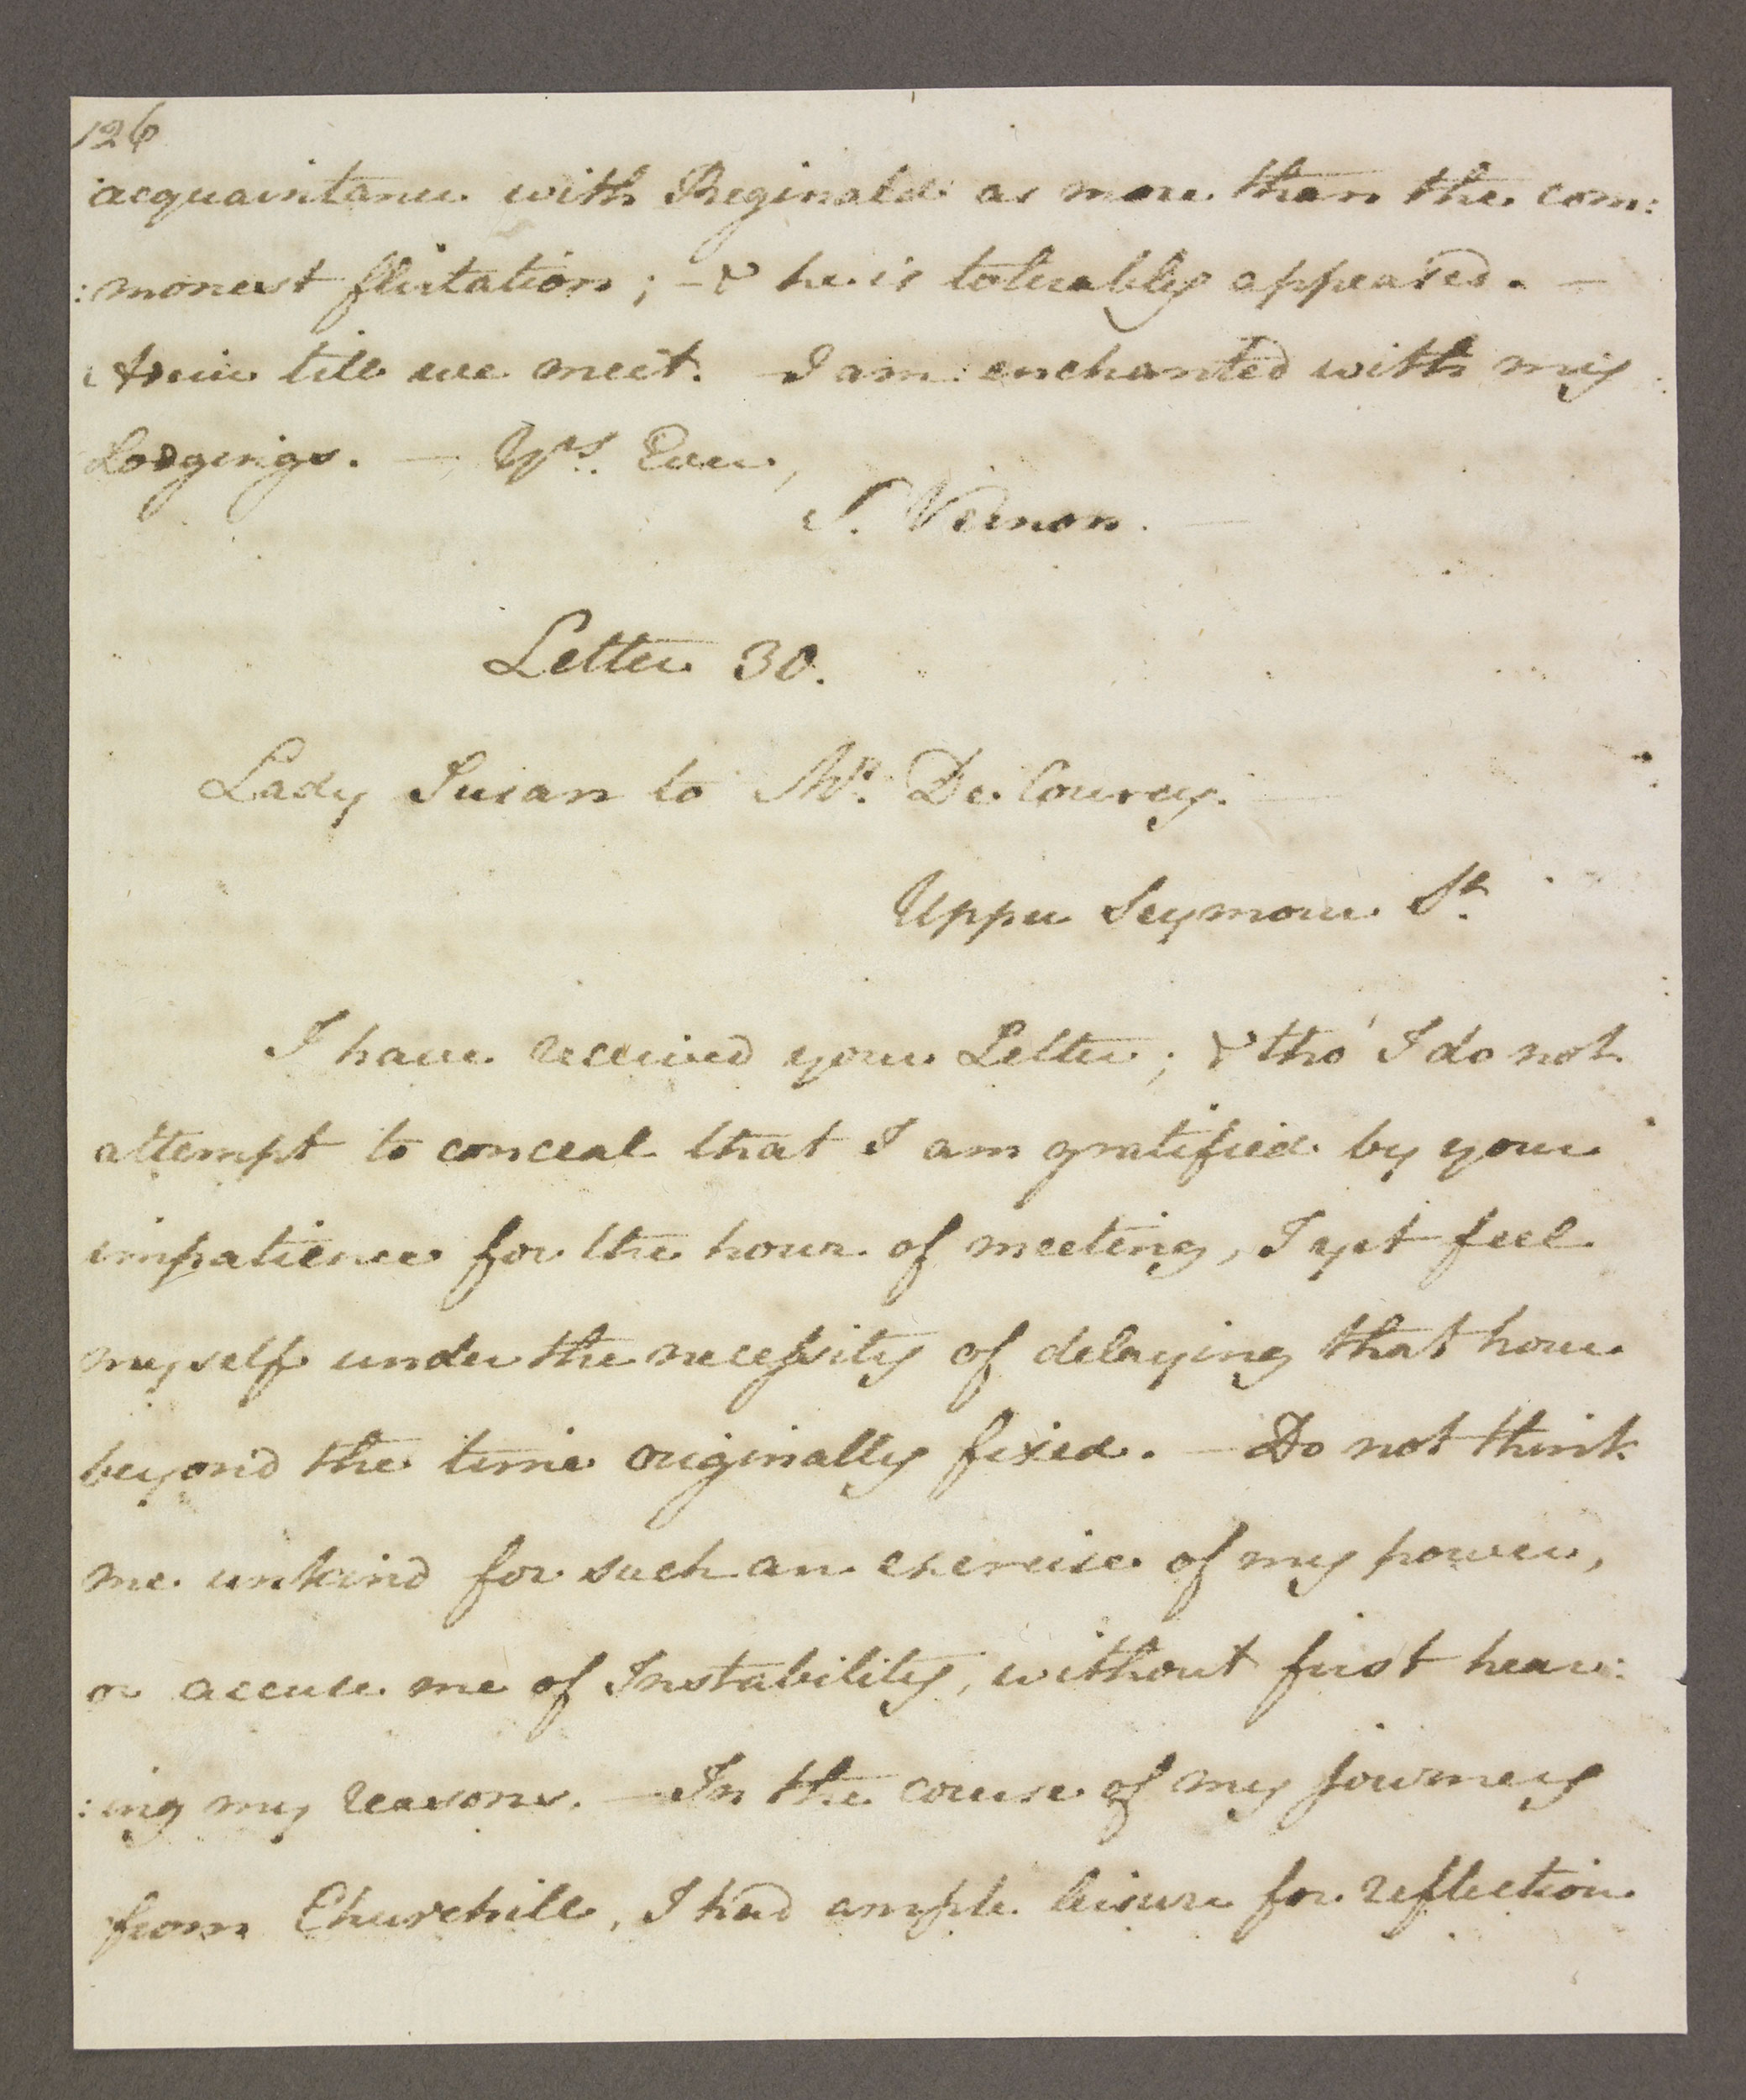 126
acquaintance with Reginald as more than the com:
:monest flirtation; - & he is tolerably appeased. -
Adeiu till we meet. - I am enchanted with my
Lodgings. - Yrs. Ever,
S. Vernon. -
Letter 30.
Lady Susan to Mr. De Courcy. -
Upper Seymour St.
I have received your Letter; & tho' I do not
attempt to conceal that I am gratified by your
impatience for the hour of meeting, I yet feel
myself under the necessity of delaying that hour
beyond the time originally fixed. - Do not think
me unkind for such an exercise of my power,
or accuse me of Instability, without first hear:
:ing my reasons. - In the course of my journey
from Churchill, I had ample leisure for reflection